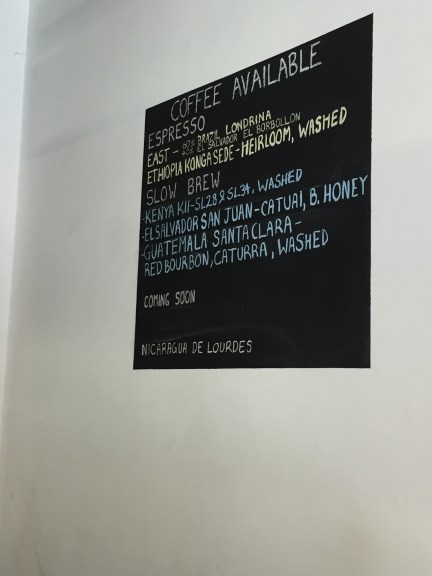 COFFEE AVAILABLE
ESPRESSO
EAST - 60% BRAZIL LONDRINA
40% EL SALVADOR EL BORBOLLON
ETHIOPIA KONGA SEDE - HEIRLOOM, WASHED
SLOW BREW
-KENYA K11 - SL28 & SL34, WASHED
-EL SALVADOR SAN JUAN - CATUAI, B. HONEY
-GUATEMALA SANTA CLARA -
RED BOURBON, CATURRA, WASHED
COMING SOON
NICARAGUA DE LOURDES